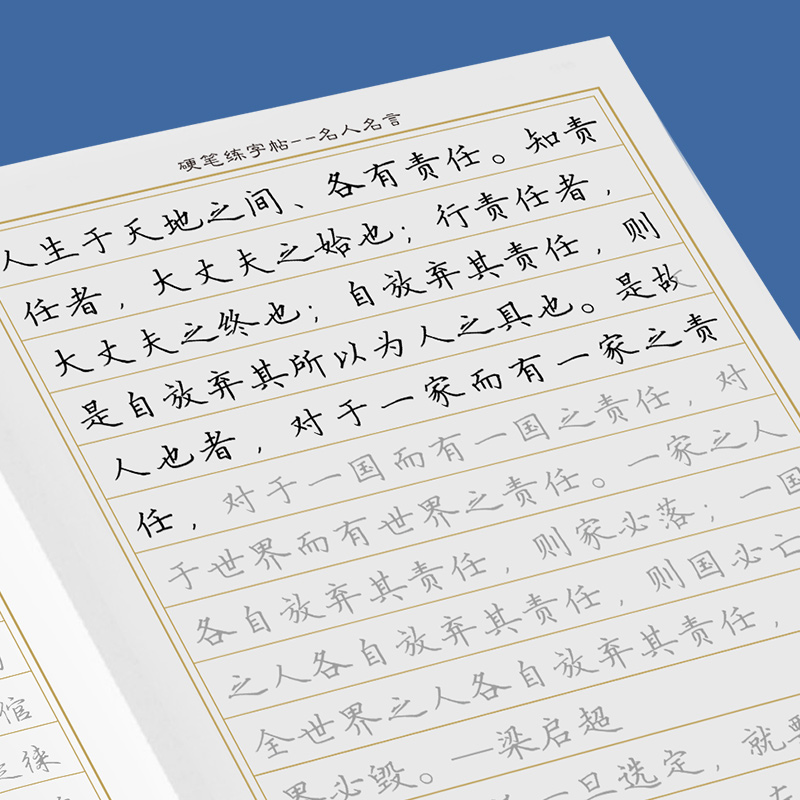 硬笔练字帖--名人名言
人生于天地之间、各有责任。知责
任者，大丈夫之始也；行责任者，
大丈夫之终也；自放弃其责任，则
是自放弃其所以为人之具也。是故
人也者，对于一家而有一家之责
任，对于一国而有一国之责任，对
于世界而有世界之责任。一家之人
各自放弃其责任，则家必落；一国
之人各自放弃其责任，则国必亡
全世界之人各自放弃其责任，
界必毁。—梁启超
一旦选定，就要